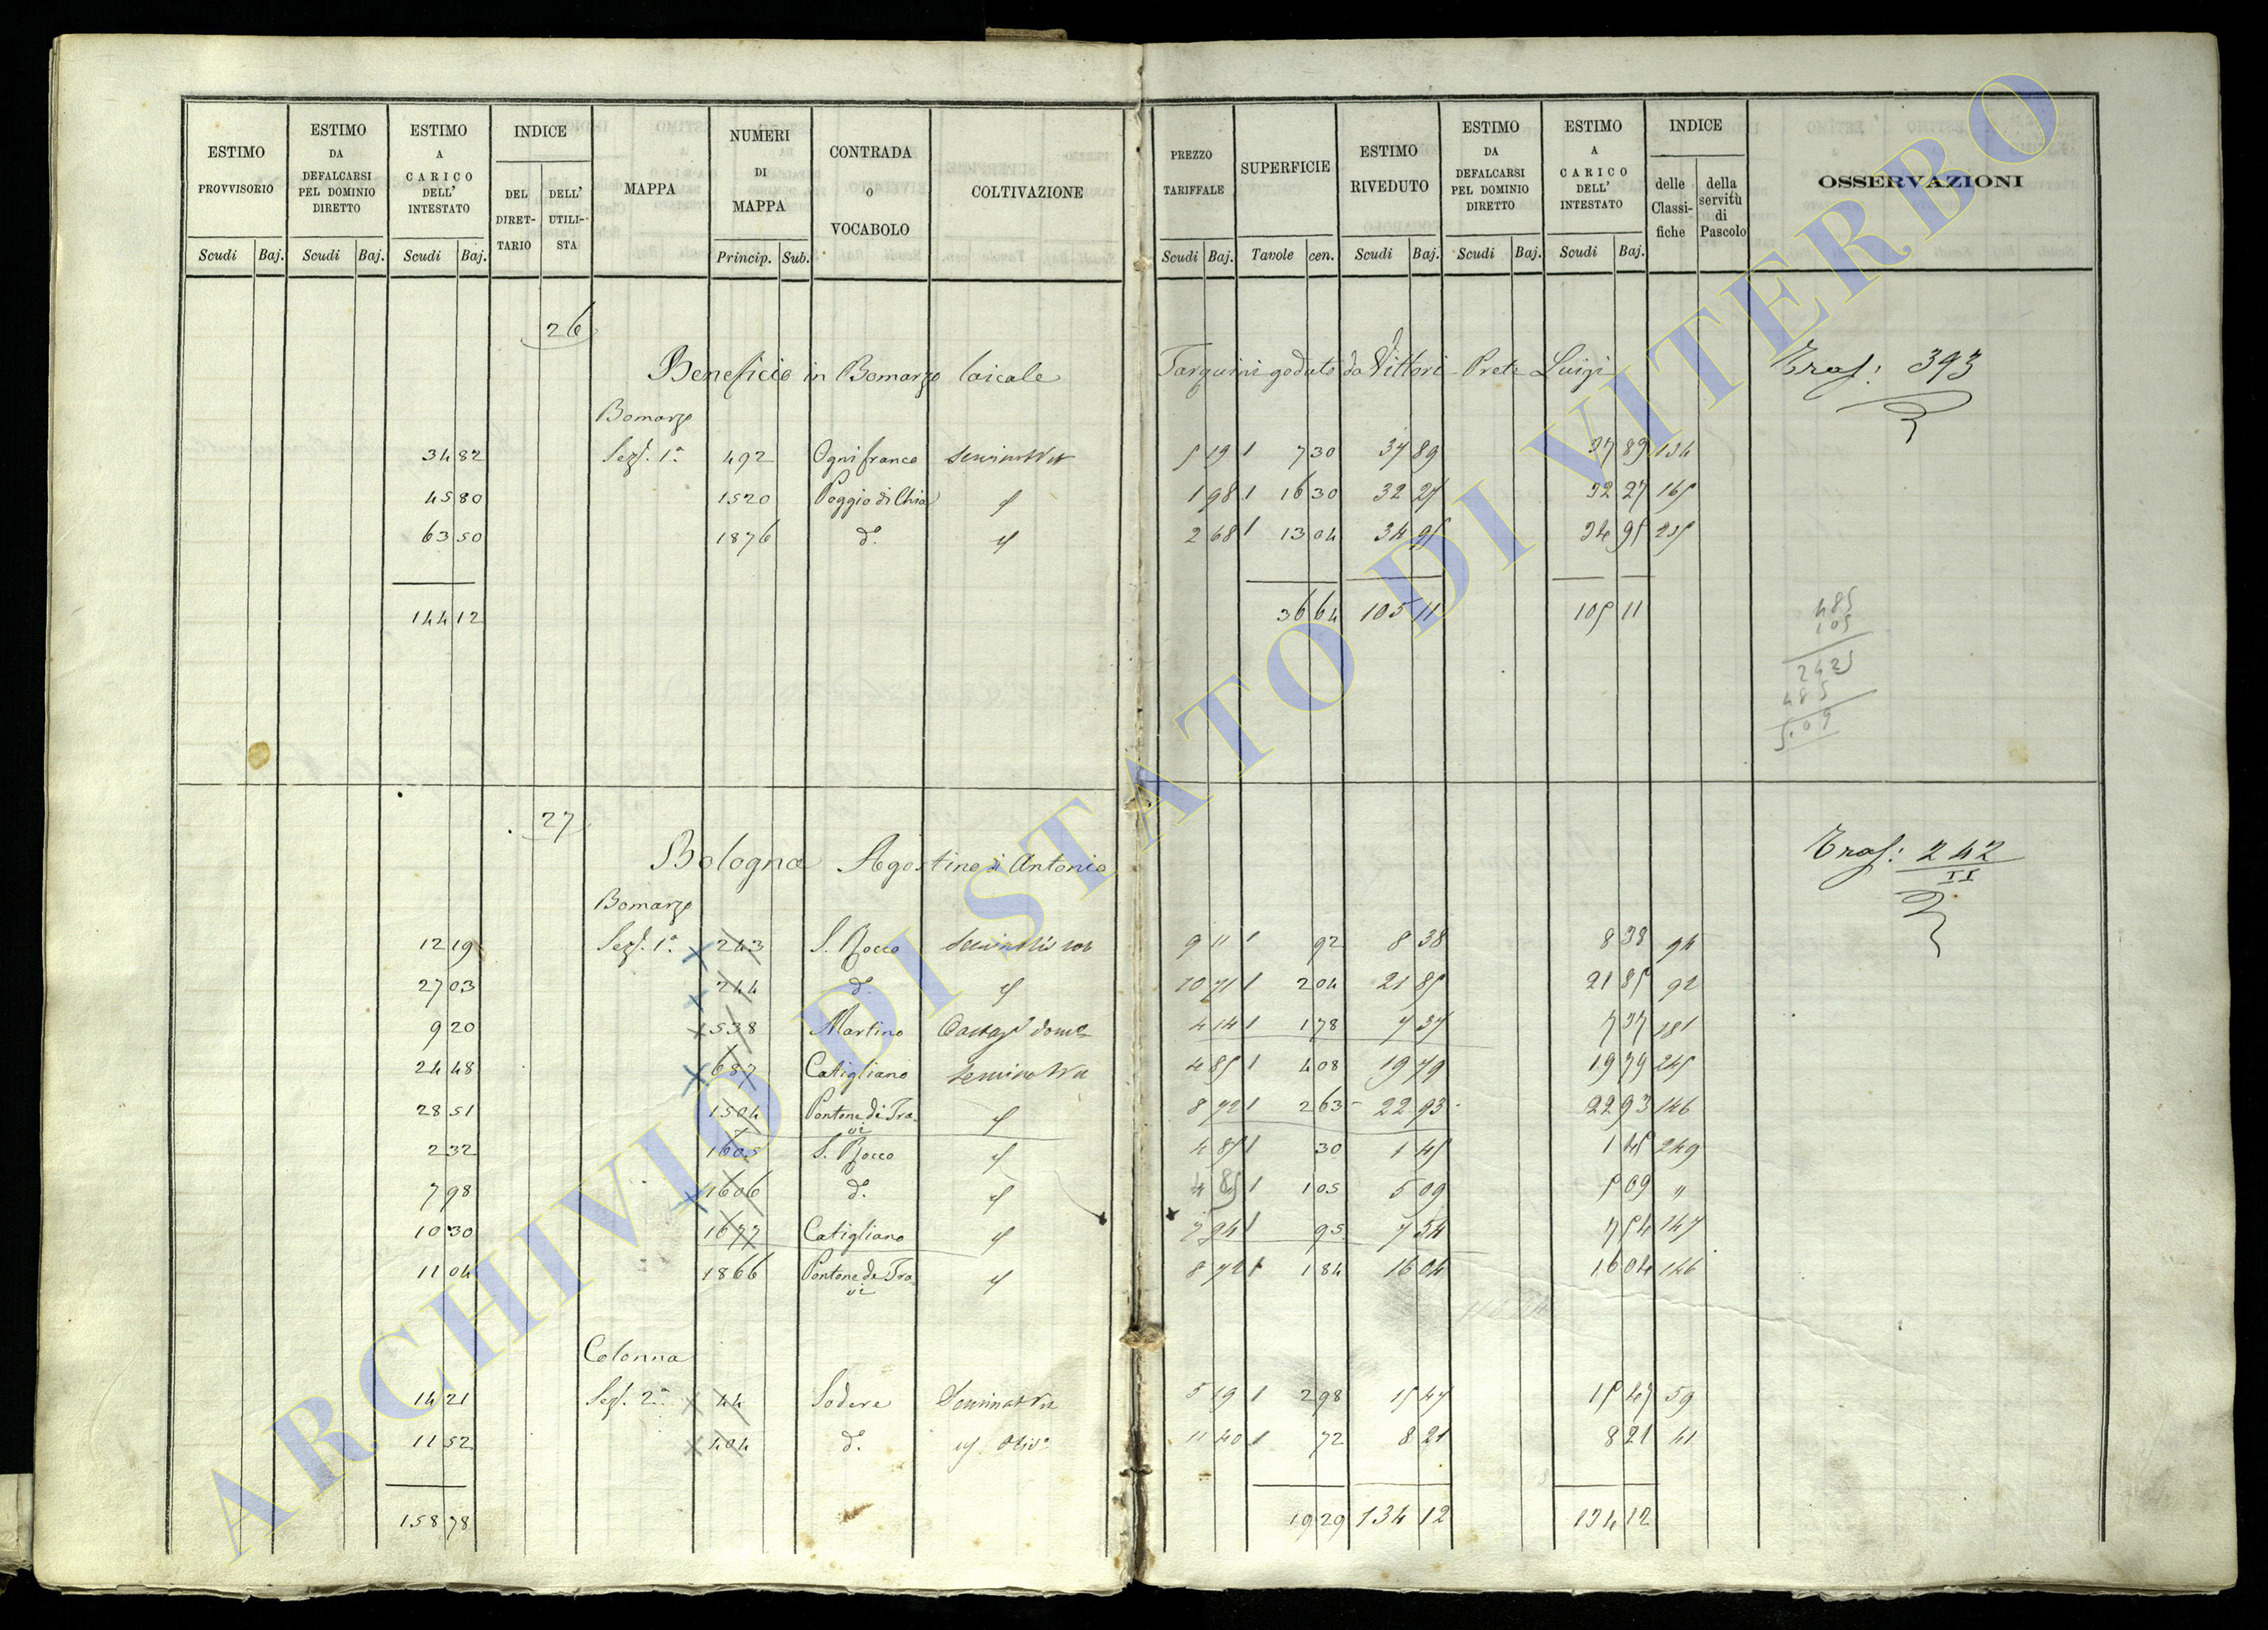 ESTIMO PROVVISORIO
ESTIMO DA DEFALCARSI PEL DOMINIO DIRETTO
ESTIMO A CARICO DELL' INTESTATO
INDICE
DEL DIRET-TARIO
DELL' UTILI-STA
MAPPA
NUMERI DI MAPPA
CONTRADA O VOCABOLO
COLTIVAZIONE
PREZZO TARIFFALE
SUPERFICIE
ESTIMO RIVEDUTO
ESTIMO DA DEFALCARSI PEL DOMINIO DIRETTO
ESTIMO A CARICO DELL' INTESTATO
INDICE
delle Classi-fiche
della servitù di Pascolo
OSSERVAZIONI
Scudi Baj. Scudi Baj. Scudi Baj. Princip. Sub. Scudi Baj. Tavole cen. Scudi Baj. Scudi Baj. Scudi Baj.
26
Beneficio in Bomarzo laicale Tarquini goduto da Vittori Prete Luigi Tras: 393
Bomarzo
34 82 Sez. 1a 492 Ognifranco 5 19 1 7 30 37 89 37 89 134
45 80 1520 Poggio di Chia 1 98 1 16 30 32 27 32 27 165
63 50 1876 do. 2 68 1 13 04 34 95 34 95 235
144 12 36 64 105 11 105 11
485
105
2425
485
5.09
27
Bologna Agostino di Antonio Tras: 242
II
Bomarzo
12 19 Sez. 1a 243 S. Rocco 9 11 1 92 8 38 8 38 94
27 03 244 do. 10 71 1 2 04 21 85 21 85 92
9 20 538 Martino 4 14 1 1 78 7 37 7 37 181
24 48 687 Catigliano 4 85 1 4 08 19 79 19 79 245
28 51 1504 Pontone di Tra-vi 8 72 1 2 63 22 93 22 93 146
2 32 1605 S. Rocco 4 85 1 30 1 45 1 45 249
7 98 1606 do. 4 85 1 1 05 5 09 5 09 "
10 30 1677 Catigliano 7 94 1 95 7 54 7 54 147
11 04 1866 Pontone di Tra-vi 8 72 1 1 84 16 04 16 04 146
Colonna
14 21 Sez. 2a 44 Sodere 5 19 1 2 98 15 47 15 47 59
11 52 404 do. 11 40 1 72 8 21 8 21 41
158 78 19 29 134 12 134 12
ARCHIVIO DI STATO DI VITERBO